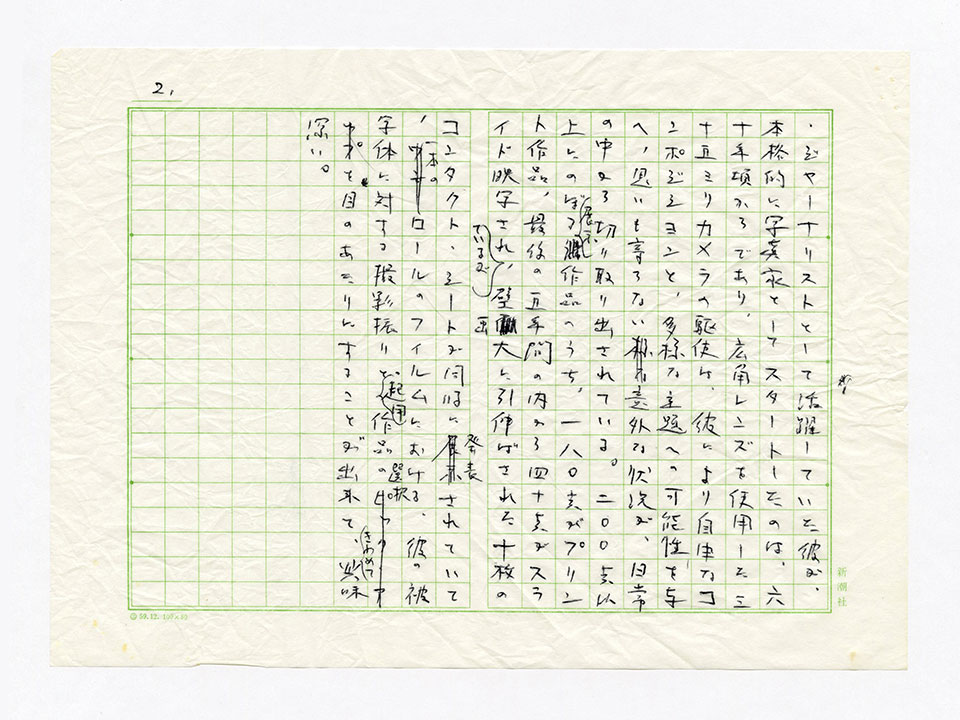 2.
・ジャーナリストとして活躍していた彼が、
本格的に写真家としてスタートしたのは、六
十年頃からであり、広角レンズを使用した三
十五ミリカメラの駆使は、彼により自由なコ
ンポジションと、多様な主題への可能性を与
へ、思いも寄らない意外な状況が、日常
の中から切り取り出されている。二〇〇点以
上にのぼる展示作品のうち、一八〇点がプリン
ト作品、最後の五年間の内から四十点がスラ
イド映写され、ているが
壁画大に引伸ばされた十枚の
コンタクト・シートが同時に発表されていて
、一本のロールのフィルムにおける、彼の被
写体に対する撮影振りと、起用作品の選択
を目のあたりにすることが出来て、きわめて興味
深い。
新潮社
59.12.